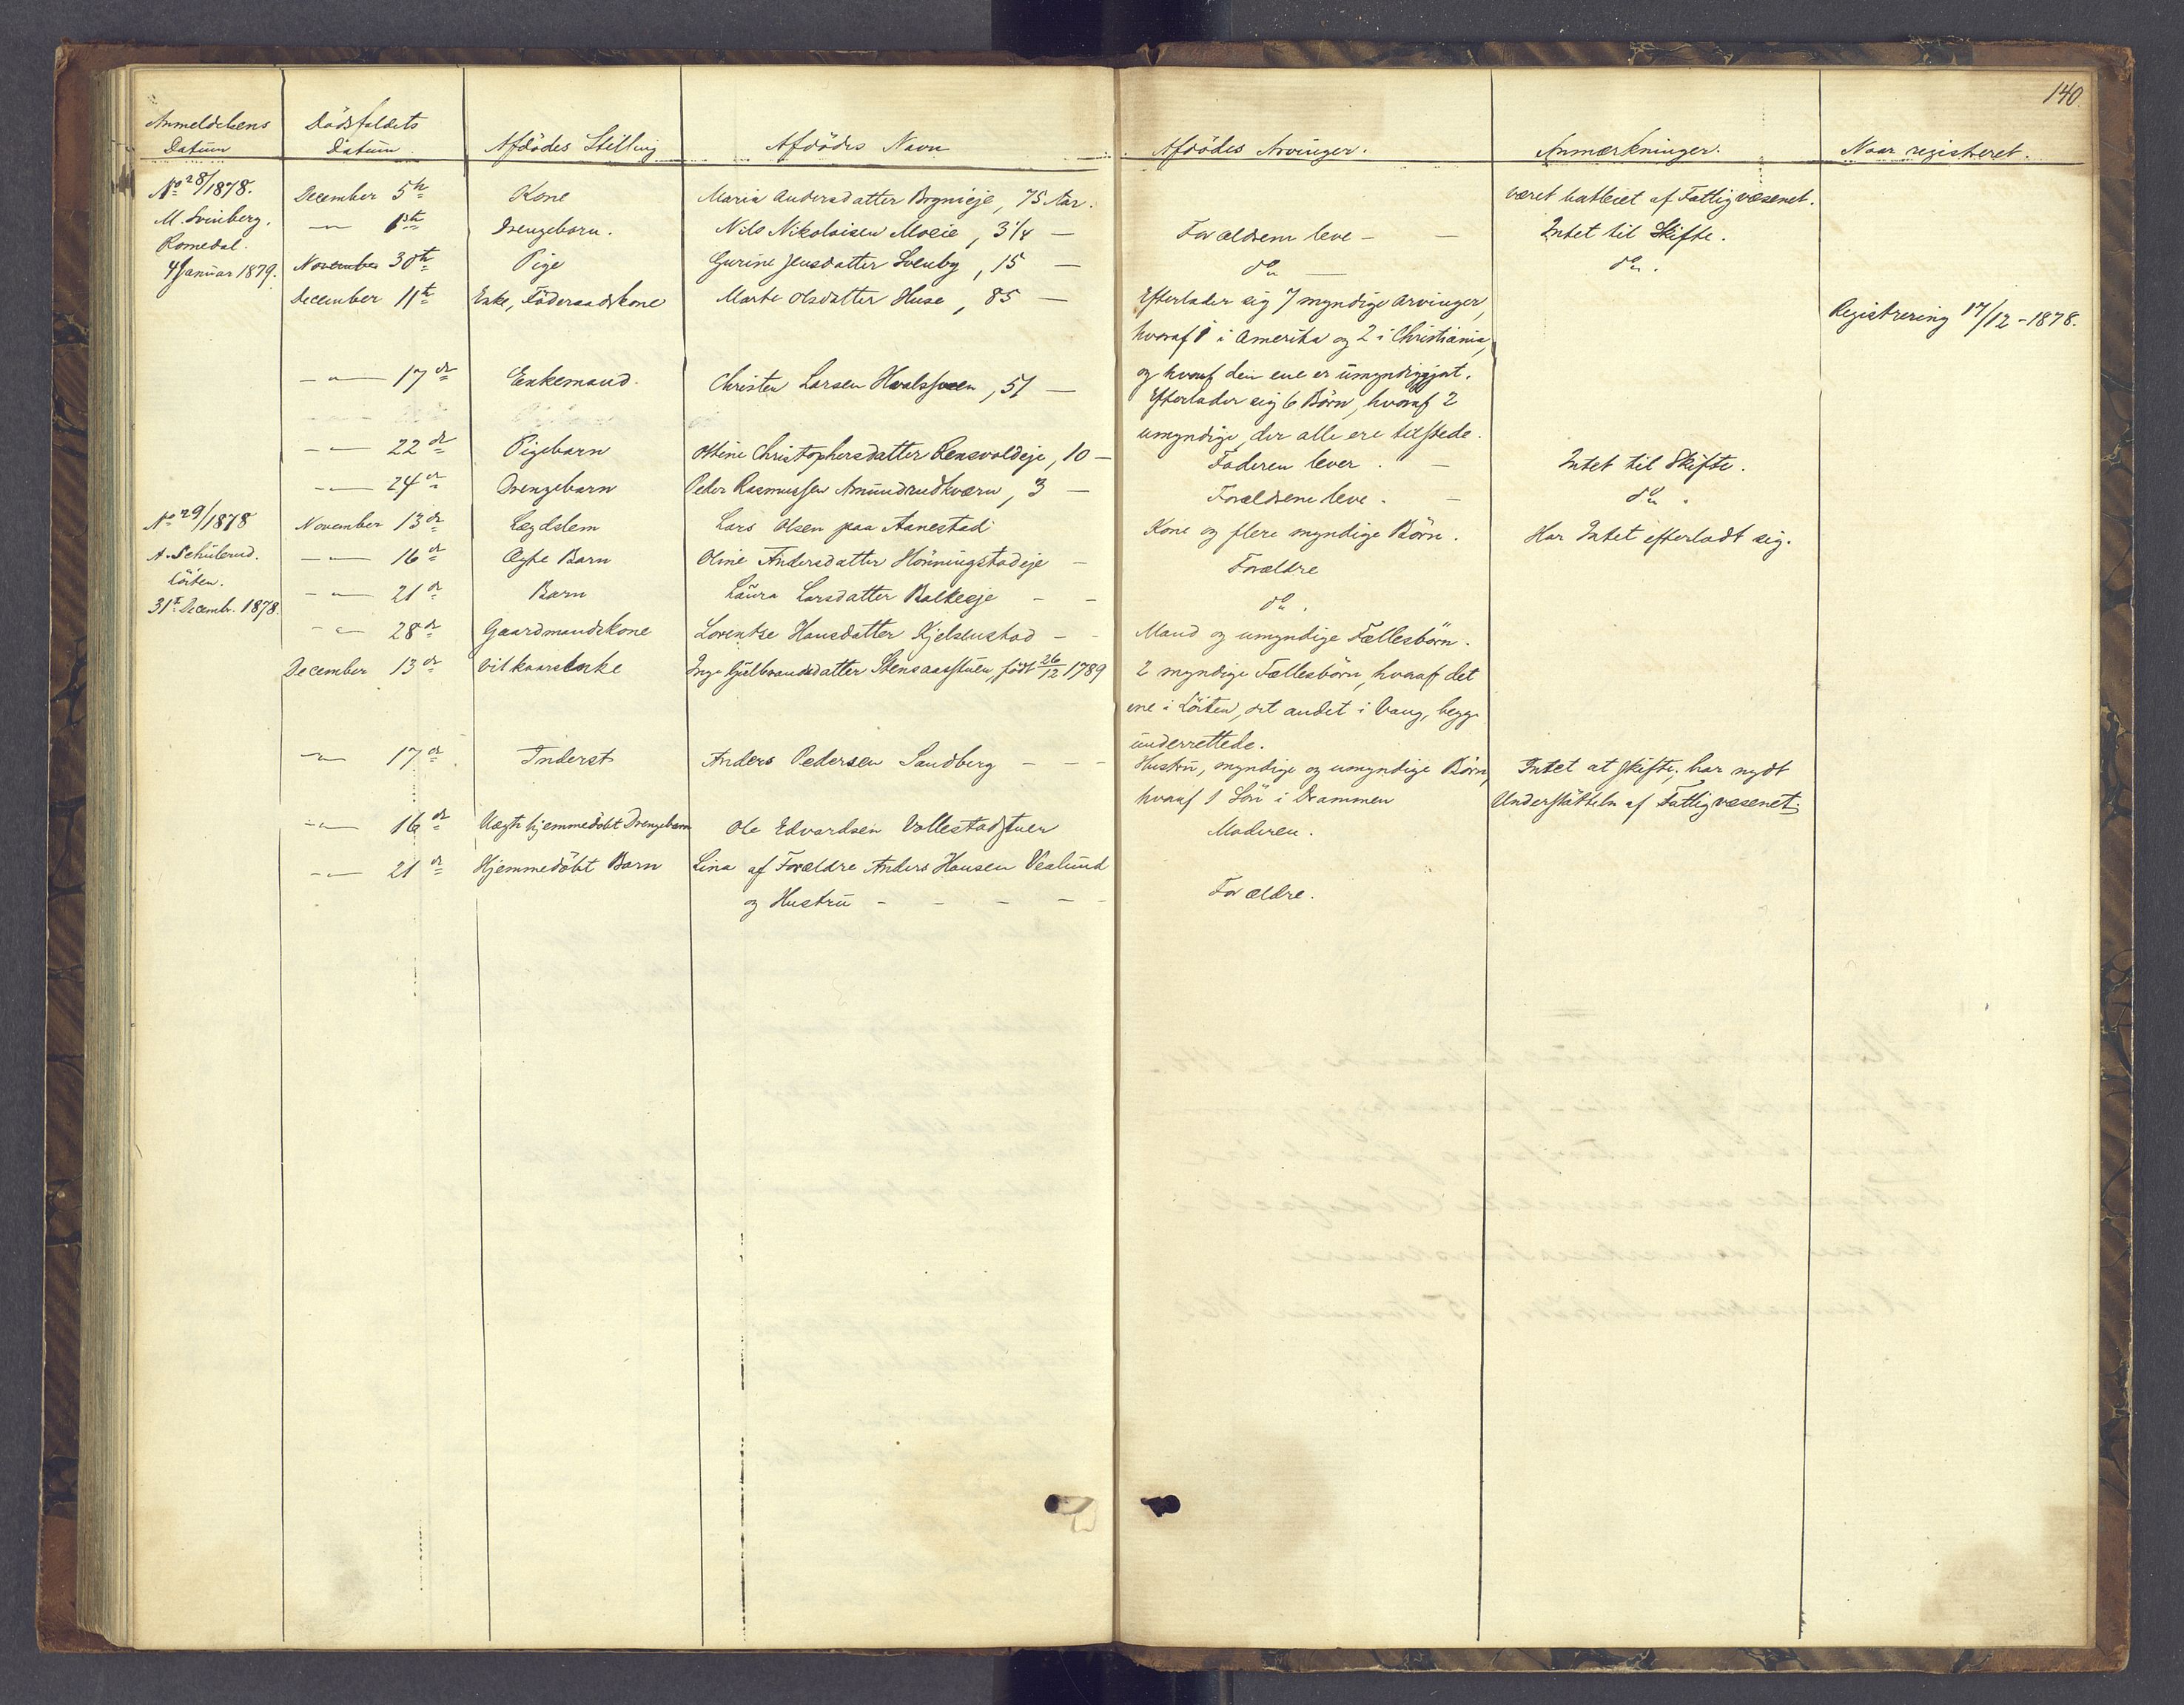 140
Anmeldelsens Datum | Dödsfaldets Datum | Afdödes Stilling | Afdödes Navn | Afdödes Arvinger. | Anmærkninger. | Naar registreret.
No 28/1878. | December 5te | Kone | Maria Andersdatter Brynieje, 75 Aar. | | været bakleiet af Fattigvæsenet.
M. Svenberg. | —"— 6te | Drengebarn. | Nils Nikolaisen Moeie, 3 1/4 — | Forældrene leve — | Intet til Skifte.
Romedal. 4 Januar 1879. | November 30te | Pige | Gurine Jensdatter Svenby, 15 — | do — | do.
December 11te | Enke, Föderaadskone | Marte Olsdatter Huse, 85 — | Efterlader sig 7 myndige Arvinger, | | Registrering 17/12-1878.
hvoraf 1 i Amerika og 2 i Christiania,
og hvoraf den ene er umyndiggjort.
—"— 17de | Enkemand. | Christen Larsen Hvalsveen, 51 — | Efterlader sig 6 Börn, hvoraf 2
umyndige, der alle ere tilstede.
—"— 22de | Pigebarn | Oline Christophersdatter Rensvoldeje, 10 — | Faderen lever. — | Intet til Skifte.
—"— 24de | Drengebarn | Peder Rasmussen Amundrudkværn, 3 — | Forældrene leve. — | do.
No 29/1878 | November 13de | Lægdslem | Lars Olsen paa Aanestad | Kone og flere myndige Börn. | Har Intet efterladt sig.
A. Schulerud. | —"— 16de | Ægte Barn | Oline Andersdatter Hönningstadeje — | Forældre
Löiten. | —"— 21de | Barn | Laura Larsdatter Balkeeje — — | do.
31te Decembr. 1878. | —"— 28de | Gaardmandskone | Lorentse Hansdatter Kjelsenstad — — | Mand og umyndige Fællesbörn.
December 13de | Vilkaarsenke | Inge Gulbrandsdatter Stensaasstuen, födt 26/12 1789 | 2 myndige Fællesbörn, hvoraf det
ene i Löiten, det andet i Vang, begge
underrettede.
—"— 17de | Inderst | Anders Pedersen Sandberg — — — | Hustru, myndige og umyndige Börn, | Intet at skifte, har nydt
hvoraf 1 Sön i Drammen | Understöttelse af Fattigvæsenet.
—"— 16de | Uægte hjemmedöbt Drengebarn | Ole Edvardsen Vollestadstuen | Moderen.
—"— 21de | Hjemmedöbt Barn | Lina af Forældre Anders Hansen Vealund
og Hustru — — — — — | Forældre.